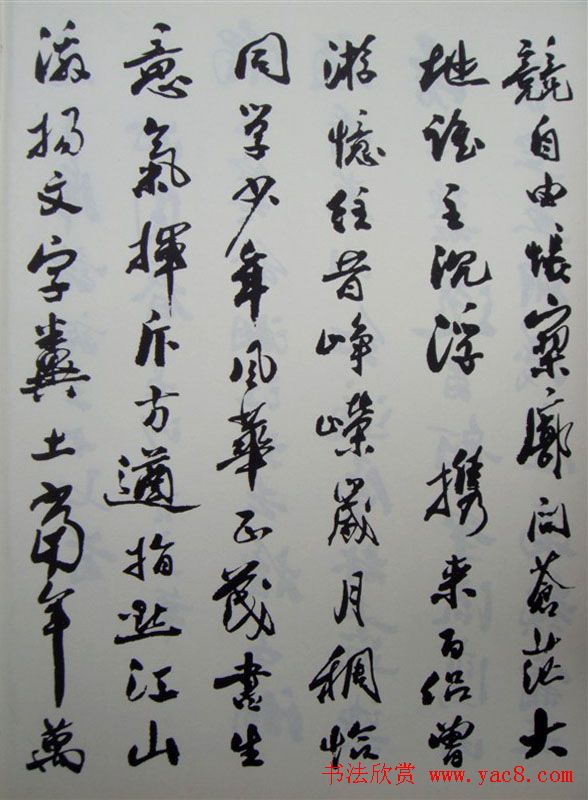 競自由悵寥廓问蒼茫大
地谁主沉浮 携来百侣曾
游憶往昔峥嵘崴月稠恰
同学少年风華正茂書生
意氣揮斥方遒指點江山
激揚文字糞土當年萬
书法欣赏 www.yac8.com